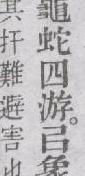 龜蛇四游。㠯象
其扞難避害也